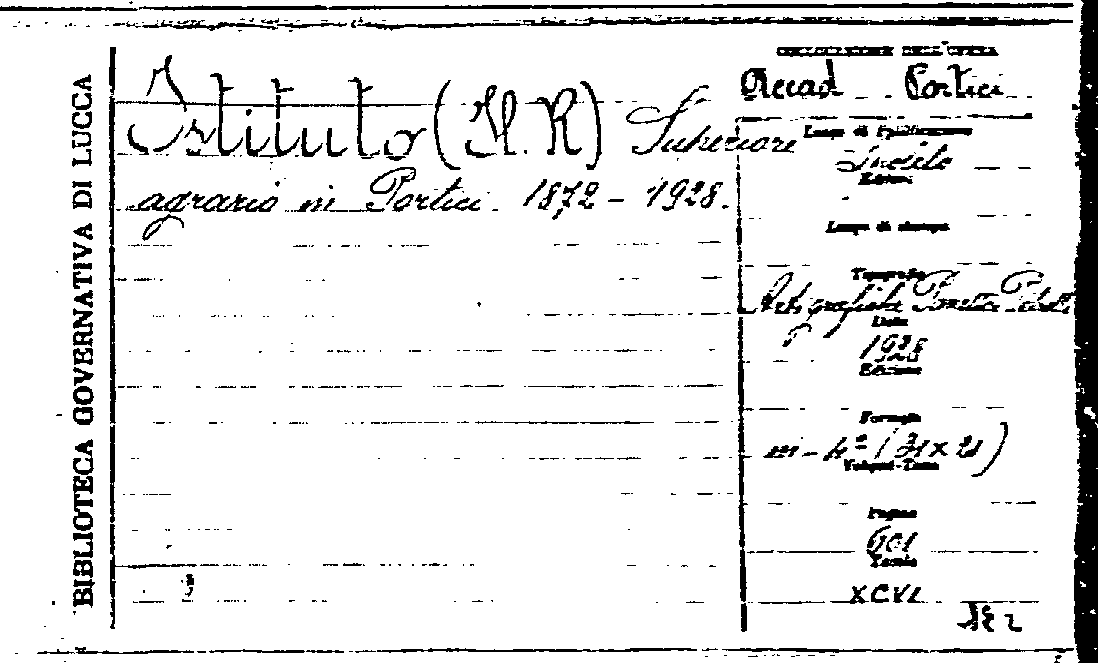 BIBLIOTECA GOVERNATIVA DI LUCCA
Istituto (Il R) Superiore
agrario in Portici. 1872 - 1928.
COLLOCAZIONE DELL'OPERA
Accad Portici
Luogo di Pubblicazione
Spoleto
Editori
Luogo di stampa
Tipografia
Arti grafiche Panetto Petrelli
Data
1928
Edizione
Formato
in-4º (31 x 21)
Volumi-Tomi
Pagine
601
Tavole
XCVI